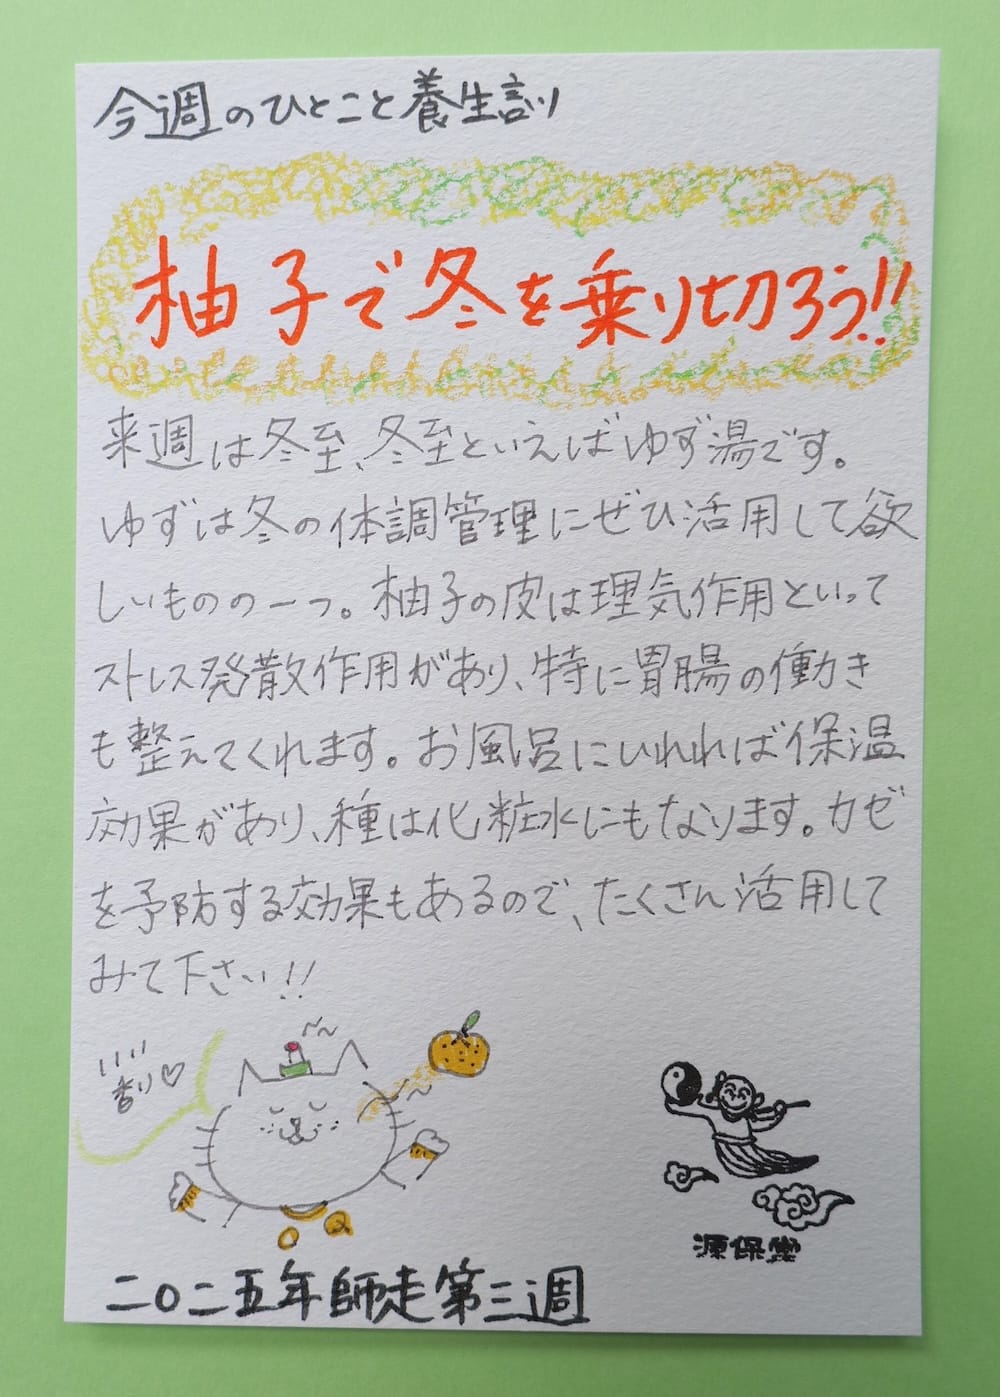 今週のひとこと養生訓
柚子で冬を乗り切ろう!!
来週は冬至、冬至といえばゆず湯です。
ゆずは冬の体調管理にぜひ活用して欲
しいものの一つ。柚子の皮は理気作用といって
ストレス発散作用があり、特に胃腸の働き
も整えてくれます。お風呂にいれれば保温
効果があり、種は化粧水にもなります。カゼ
を予防する効果もあるので、たくさん活用して
みて下さい!!
いい
香り♡
源保堂
二〇二五年師走第三週